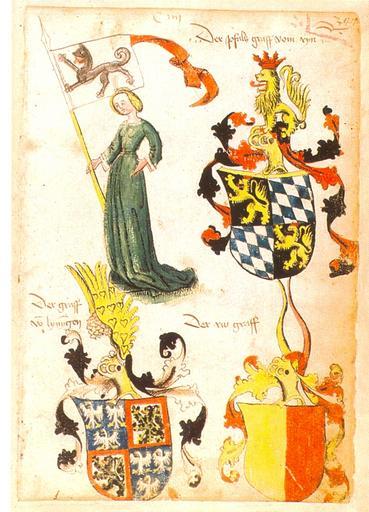 Der pfalczgraff vom ryn
Der graff
vo lyningen
Der rw graff